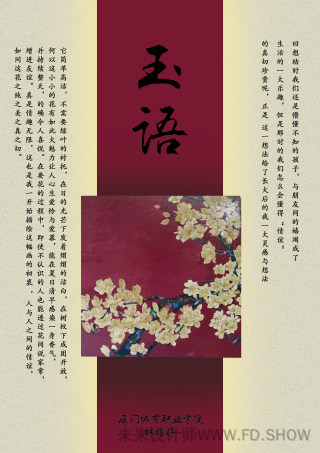 玉语
回想幼时我们还是懵懂不知的孩子,与朋友间的嬉闹成了
生活的一大乐趣,但是那时的我们怎么会懂得:情谊。
的真切珍贵呢,正是这一想法给了长大后的我一大灵感与想法
它简单高洁,不需要绿叶的衬托,在日的光芒下发着熠熠的洁白,在树杈下成团开放,
何以这小小的花有如此大魅力让人心生爱怜与爱慕,能在夏日清早感染一身香气,
并持续整天,的确令人喜悦。在要花的过程中,即使不认识的人也能透过花间说家常,
增进友谊。真是情趣无限,这也是我一开始描绘这幅画的初衷。人与人之间的情谊,
如同这花之纯之美之真之切。
厦门城市职业学院
未来设计师WWW.FD.SHOW